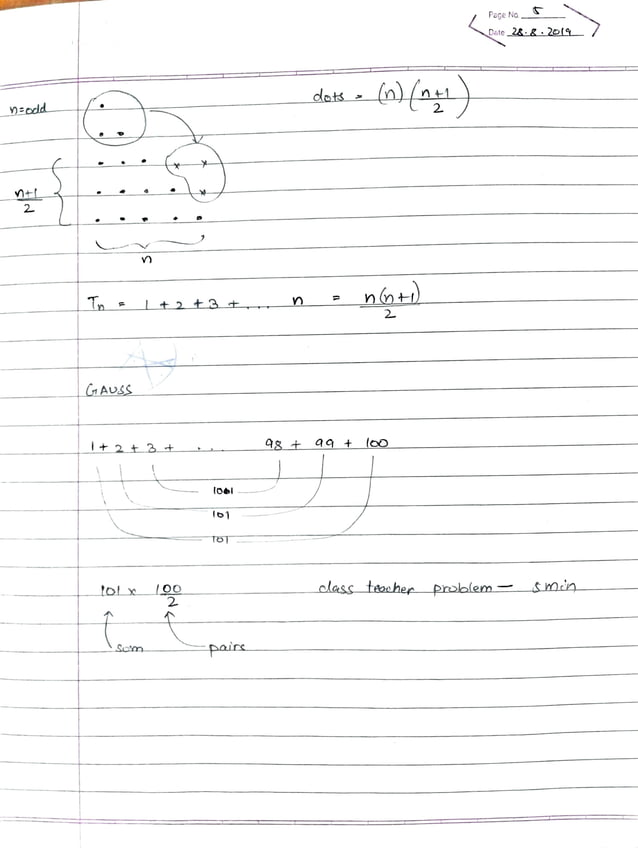 Page No. 5
Date 28.8.2019
n=odd
dots = (n) (n+1/2)
n+1/2
n
Tn = 1 + 2 + 3 + ... n = n(n+1)/2
GAUSS
1 + 2 + 3 + ... 98 + 99 + 100
101
101
101
101 x 100/2
class teacher problem — 5min
sum
pairs